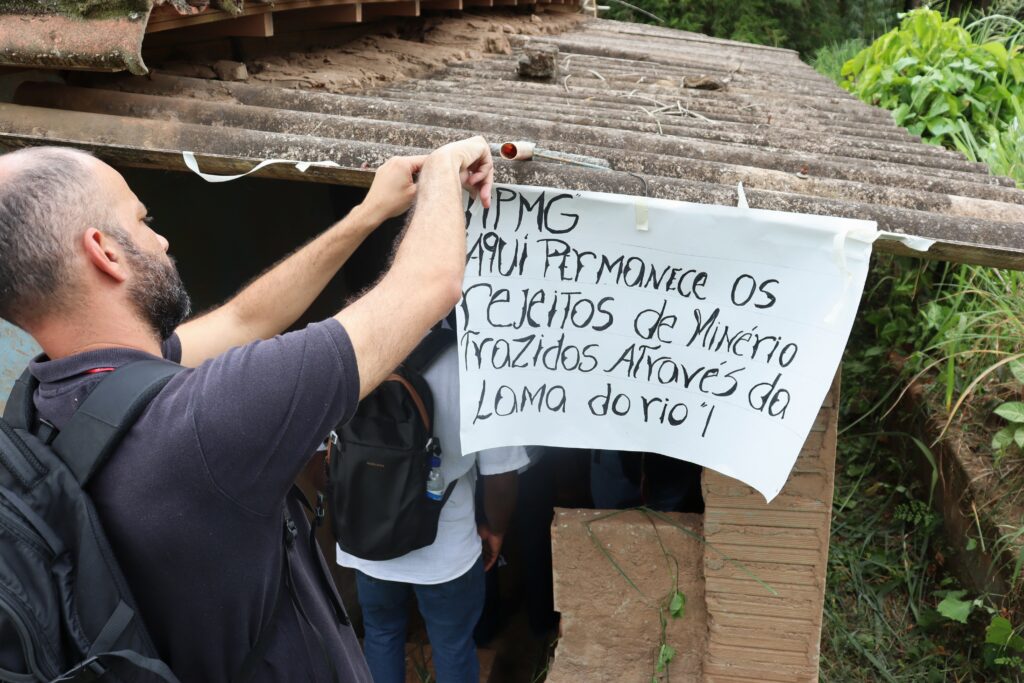 MPMG"
AQUI PERMANECE OS
rejeitos de Minério
Trazidos Através da
Lama do rio"!